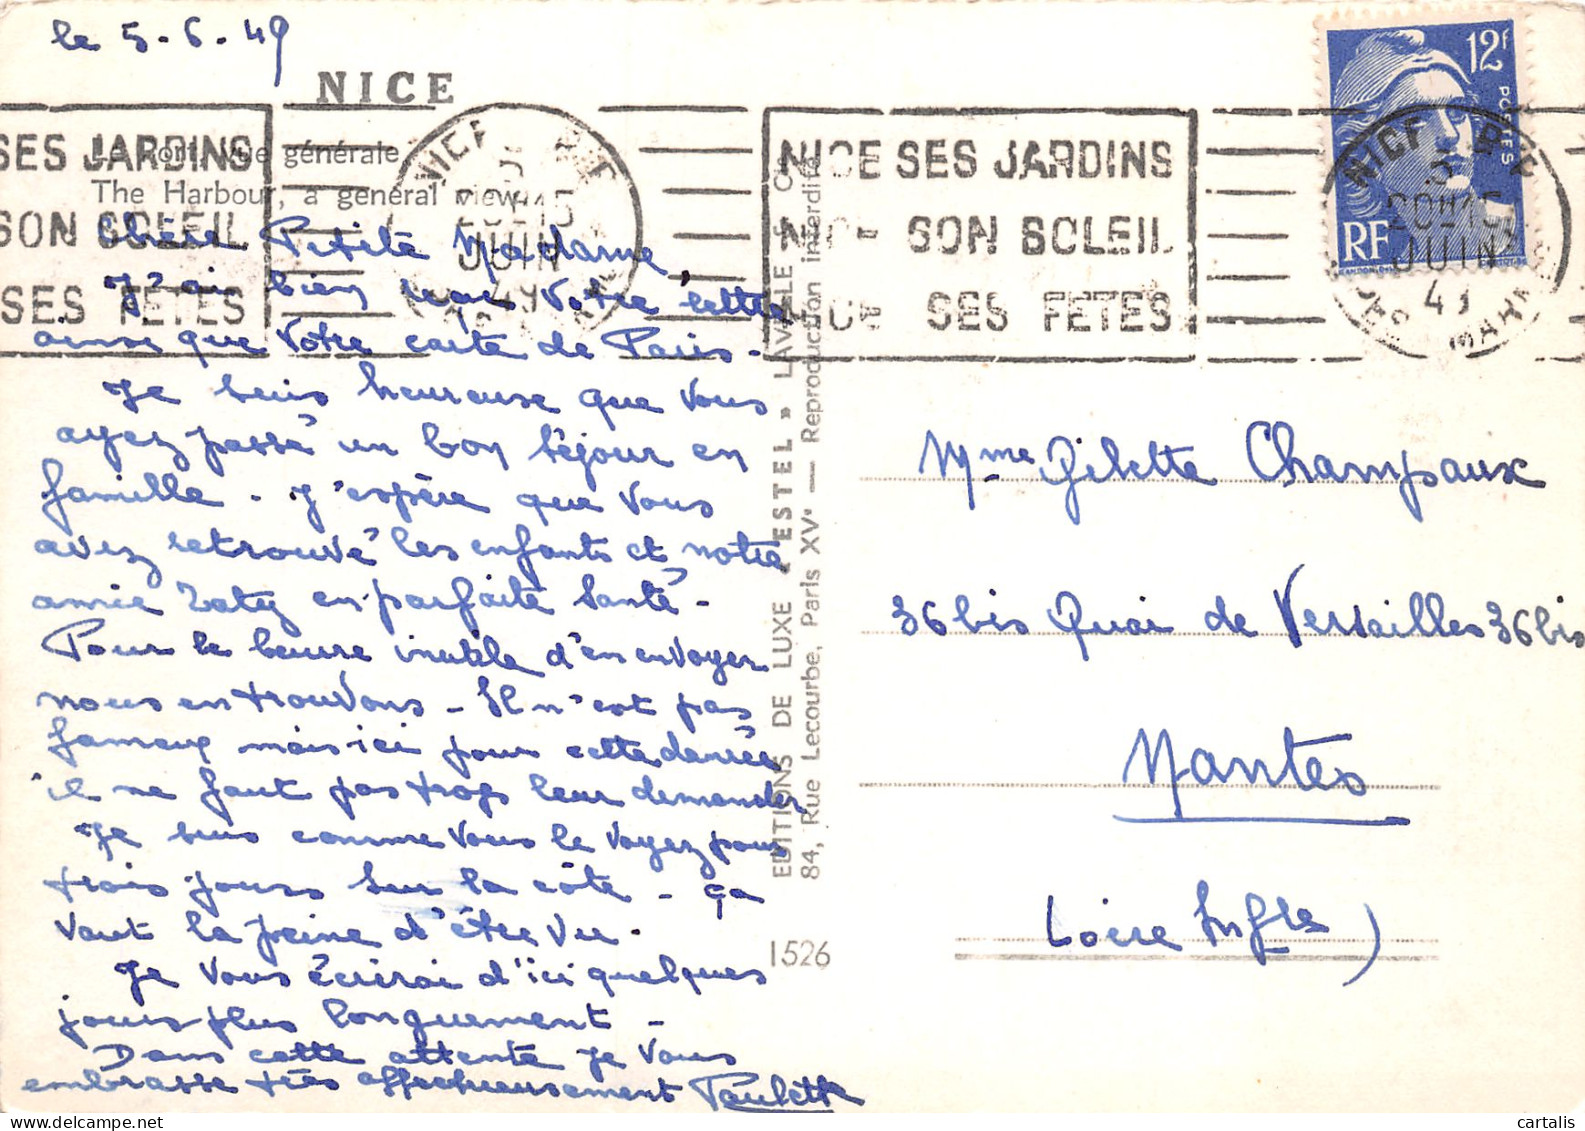 le 5-6-49
NICE
générale.
The Harbour, a general view.
Chère Petite Madame,
J'ai bien reçu votre lettre
ainsi que votre carte de Paris -
Je suis heureuse que vous
ayez passé un bon séjour en
famille - J'espère que vous
avez retrouvé les enfants et notre
amie Zaty en parfaite santé -
Pour le beurre inutile d'en envoyer
nous en trouvons - Il n'est pas
fameux mais ici pour cette denrée
il ne faut pas trop leur demander
Je suis comme vous le voyez pour
trois jours sur la côte - ça
vaut la peine d'être vu.
Je vous écrirai d'ici quelques
jours plus longuement -
Dans cette attente je vous
embrasse très affectueusement Paulette
SES JARDINS
SON SOLEIL
SES FETES
20H15
JUIN
49
EDITIONS DE LUXE « ESTEL » LAVELLE & Cie
84, Rue Lecourbe, Paris XVe — Reproduction interdite
1526
NICE SES JARDINS
NICE SON SOLEIL
NICE SES FETES
12F
POSTES
RF
20H15
JUIN
49
Mme Gilette Champaux
36 bis Quai de Versailles 36 bis
Nantes
Loire Inf re)
cartalis